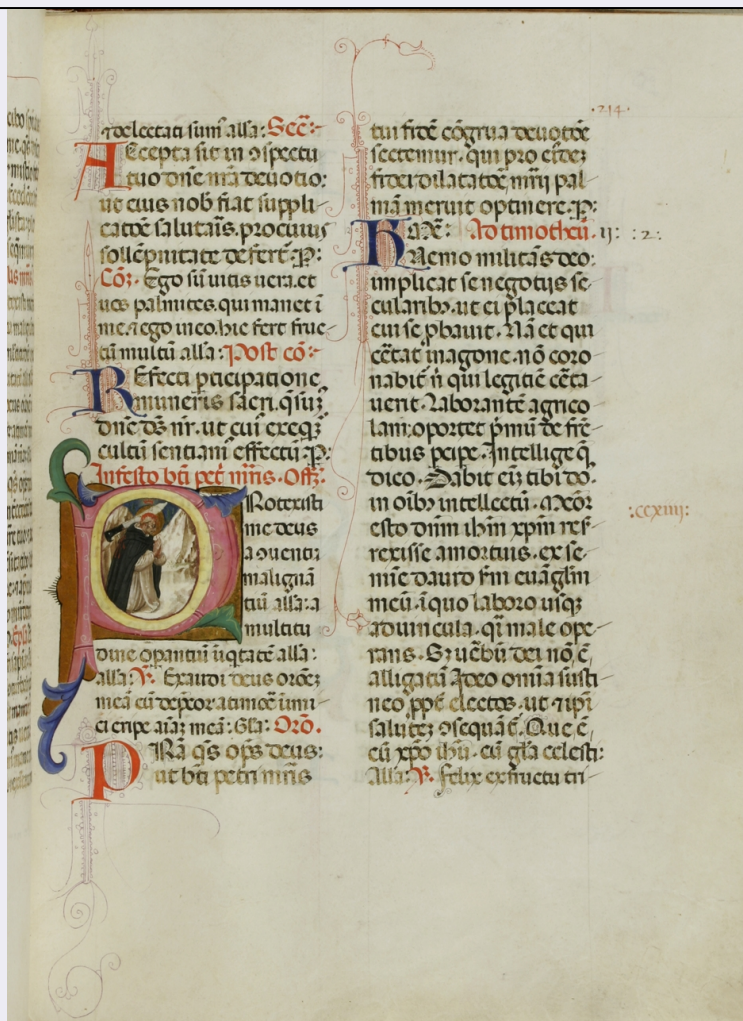 ·214·
⁊ delectati sum̄ alła: Sec̄:
Accepta sit in ɔspectu
tuo dn̄e nr̄a deuotio:
ut eius nob̄ fiat suppli-
catōe salutar̄is. pro cuius
sollēpnitate defert̄. P:
Cōz. Ego sū uitis uera. et
uos palmites. qui manet ī
me. ⁊ ego in eo. hic fert fruc-
tū multū alła: Post cō:
REfecti p̄ticipatione
muneris sacri. q̄sum̄
dn̄e ds̄ nr̄. ut cui exeq̄
cultū sentiam̄ effectū. P:
In festo bt̄i pet̄ mr̄is. Off̄z.
PRotexisti
me deus
a ɔuentu
malignā
tiū alła: a
multitu
dine opantiū iīq̄tatē alła:
alła: V. Exaudi deus orōez
meā cū dep̄cor a timoē inmi-
ci eripe aīaz meā: Gła: Orō.
PRā q̄s op̄s deus:
ut bt̄i petri mr̄is
tui fidē cōgrua deuotōe
sectemur. qui pro eīdez
fidei dilatatōe mr̄ii pal-
mā meruit optinere. P:
Ad timotheū. ij: :2:
Nemo militās deo:
implicat se negotiis se-
cularibȝ. ut ei placeat
cui se p̄bauit. Nā et qui
cētat in agone. nō coro
nabit̄ n̄ qui legitiē cēta-
uerit. Laborantē agrico
lam: oportet p̄mū de frē-
tibus p̄cipe. Intellige q̄
dico. Dabit eīz tibi do-
in oībȝ intellectū. Memor
:ccxiiij:
esto dn̄m ihm̄ xpm̄ res-
rexisse a mortuis. ex se-
mīe dauid s̄m euāglm̄
meū. ī quo laboro usqȝ
ad uincula. q̄i male ope-
rans. Sȝ uerbū dei nō ē
alligatū Ideo omīa susti-
neo ppt̄ electos. ut ⁊ ip̄i
salutez ɔsequāt̄. Que ē
cū xp̄o ihū. cū gła celesti:
Alła: V. Felix ex fructu tri-